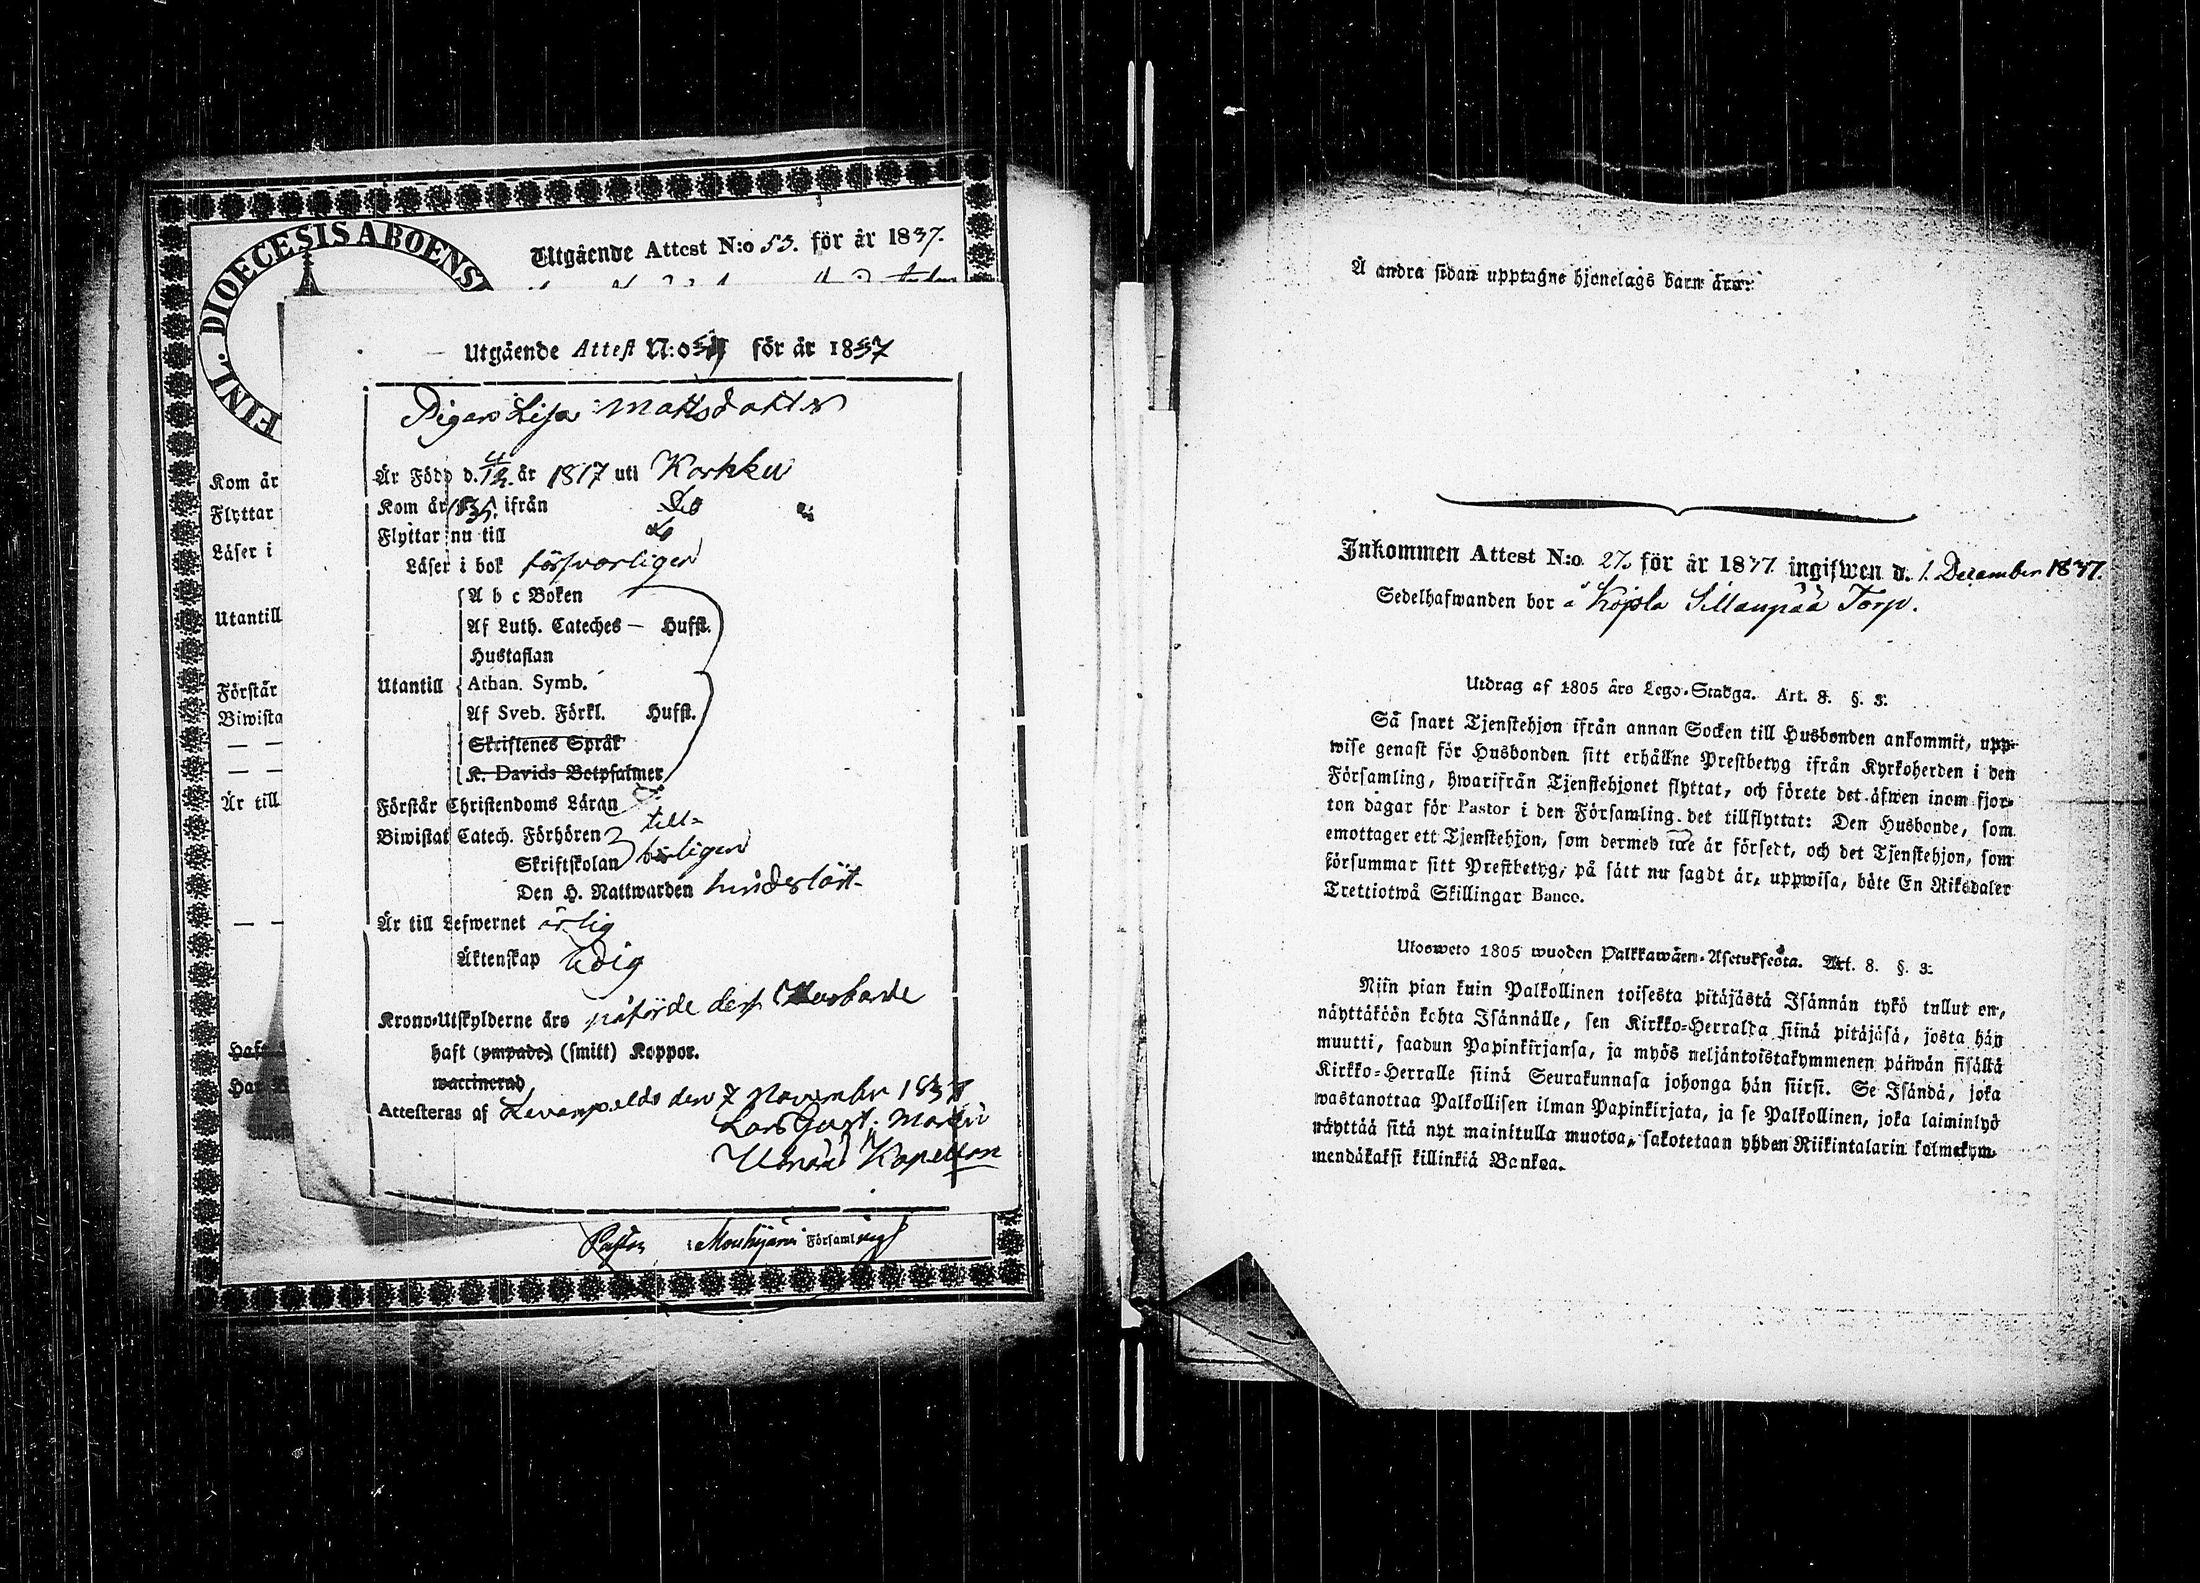 FINL. DIOECESIS ABOENS
Utgående Attest N:o 53. för år 1837.
Kom år
Flyttar
Läser i
Utantill
Förstår
Biwista
Är till
Utgående Attest N:o för år 1837
Pigan Lisa Mattsdotter
Är Född d. år 1817 uti Karkku
Kom år ifrån Do
Flyttar nu till Do
Läser i bok försvarligen
A b c Boken
Af Luth. Cateches — Hufst.
Hustaflan
Utantill Athan. Symb.
Af Sveb. Förkl. Hufst.
Skriftenes Språk
K. Davids Botpsalmer
Förstår Christendoms Läran
Biwistat Catech. Förhören till-
Skriftskolan börligen
Den H. Nattwarden
Är till Lefwernet ärlig
Äktenskap ledig
Krono-Utskylderne äro påförde dess Husbonde
haft (ympade) (smitt) Koppor.
waccinerad
Attesteras af den 7 November 1837
Lars Gust.
Kapellan
Pastor i Mouhijärvi Församling
Å andra sidan upptagne hjonelags barn äro:
Inkommen Attest N:o 27. för år 1837. ingifwen d. 1. December 1837.
Sedelhafwanden bor å Sillanpää Torp.
Utdrag af 1805 års Lego-Stadga. Art. 8. §. 3.
Så snart Tjenstehjon ifrån annan Socken till Husbonden ankommit, upp-
wise genast för Husbonden sitt erhållne Prestbetyg ifrån Kyrkoherden i den
Församling, hwarifrån Tjenstehjonet flyttat, och förete det äfwen inom fjor-
ton dagar för Pastor i den Församling det tillflyttat: Den Husbonde, som
emottager ett Tjenstehjon, som dermed icke är försedt, och det Tjenstehjon, som
försummar sitt Prestbetyg, på sätt nu sagdt är, uppwisa, böte En Riksdaler
Trettiotwå Skillingar Banco.
Ulosweto 1805 wuoden Palkkawäen-Asetuksesta. Art. 8. §. 3.
Niin pian kuin Palkollinen toisesta pitäjästä Isännän tykö tullut on,
näyttäköön kohta Isännälle, sen Kirkko-Herralta siinä pitäjäsä, josta hän
muutti, saadun Papinkirjansa, ja myös neljäntoistakymmenen päiwän sisällä
Kirkko-Herralle siinä Seurakunnasa johonga hän siirsi. Se Isändä, joka
wastanottaa Palkollisen ilman Papinkirjata, ja se Palkollinen, joka laiminlyö
näyttää sitä nyt mainitulla muotoa, sakotetaan yhden Riikintalarin kolmekym-
mendäkaksi killinkiä Bankoa.